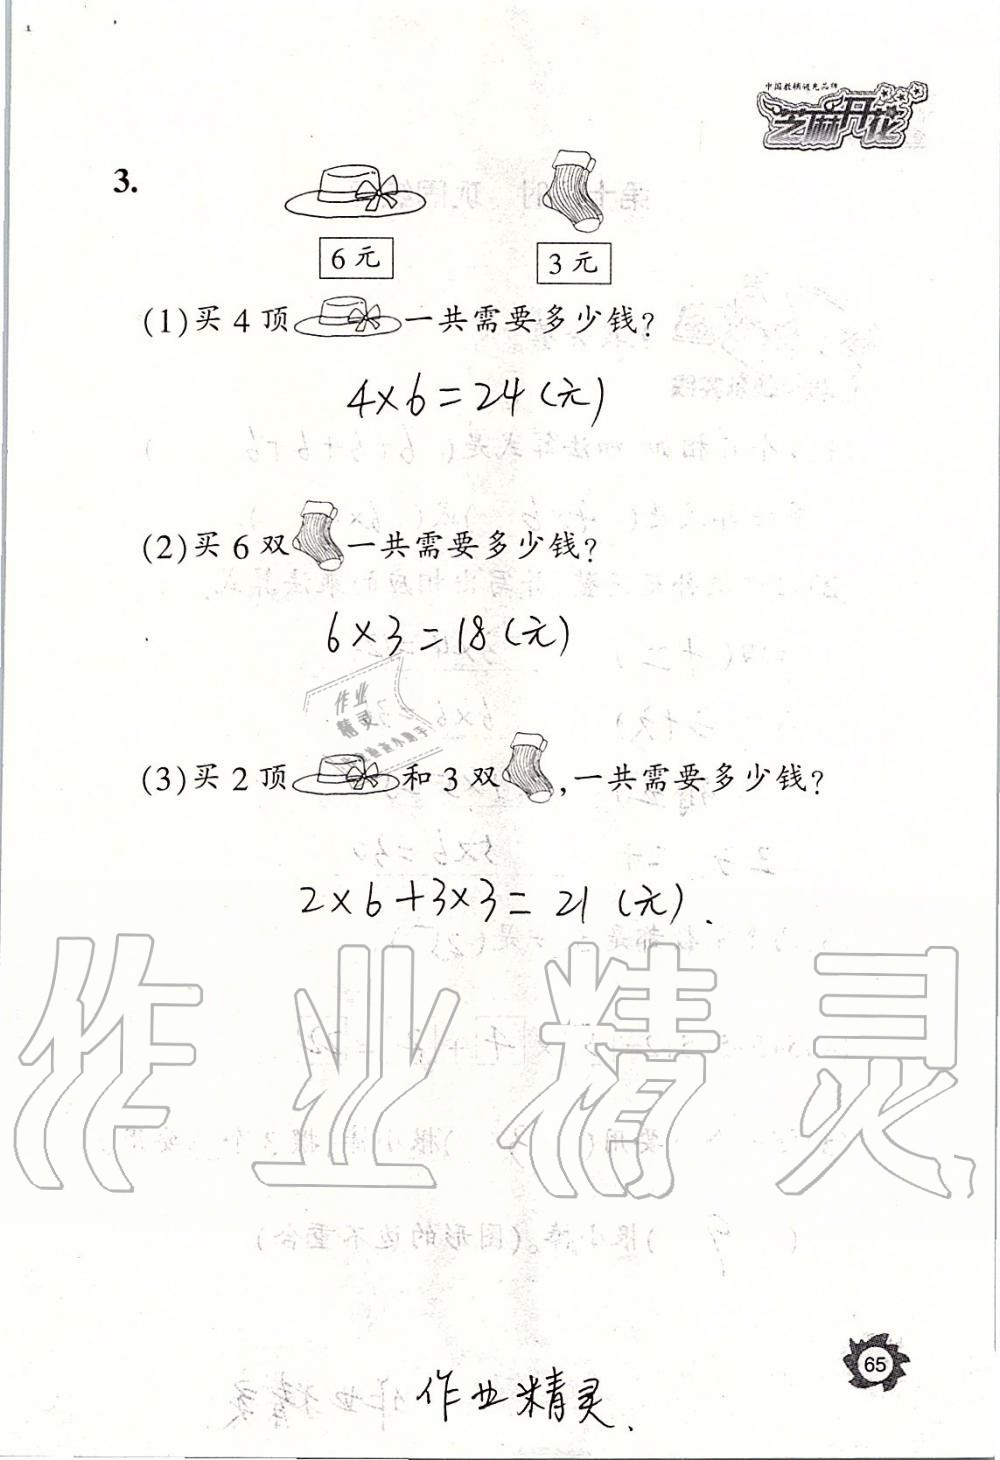 中国教辅领先品牌
芝麻开花
3.
6元
3元
(1)买4顶一共需要多少钱?
4×6=24(元)
(2)买6双一共需要多少钱?
6×3=18(元)
作业
精灵
(3)买2顶和3双,一共需要多少钱?
2×6+3×3=21(元).
作业精灵
65
作业精灵